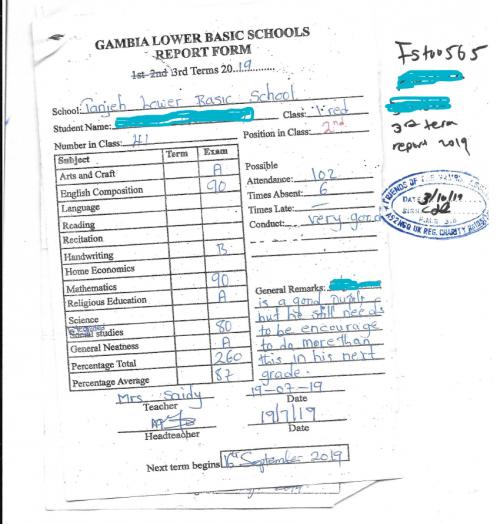 GAMBIA LOWER BASIC SCHOOLS
REPORT FORM
1st 2nd 3rd Terms 2019
School: Tanjeh Lower Basic School
Student Name: Class: 4 red
Number in Class: 41 Position in Class: 2nd
Subject Term Exam
Arts and Craft A
English Composition 90
Language
Reading
Recitation
Handwriting B
Home Economics
Mathematics 90
Religious Education A
Science
Social studies 80
General Neatness A
Percentage Total 260
Percentage Average 87
Possible
Attendance: 102
Times Absent: 6
Times Late: –
Conduct: very good
General Remarks:
is a good pupil
but he still needs
to be encourage
to do more than
this in his next
grade.
Mrs Saidy 19-07-19
Teacher Date
19/7/19
Headteacher Date
Next term begins 16th September 2019
3rd term
report 2019
FRIENDS OF
DATE
SIGN
UK REG. CHARITY